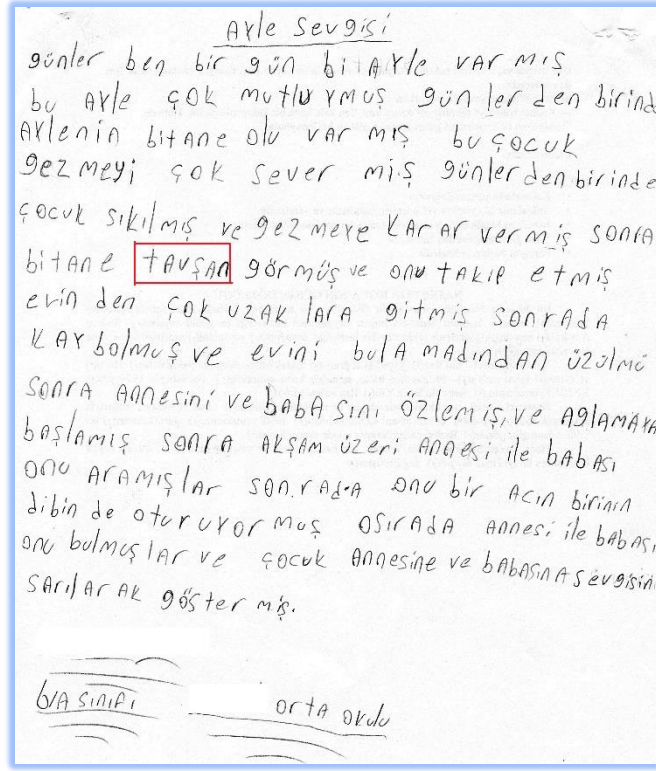 Ayle Sevgisi
günler ben bir gün bi tayle varmış
bu ayle çok mutluymuş günlerden birind
aylenin bitane olu varmış bu çocuk
gezmeyi çok severmiş günlerdenbirinde
çocuk sıkılmış ve gezmeye karar vermiş sonra
bitane tavşan görmüş ve onu takip etmiş
evinden çok uzaklara gitmiş sonrada
kaybolmuş ve evini bulamadından üzülmü
sonra annesini ve babasını özlemiş, ve aglamaya
başlamış sonra akşam üzeri annesi ile babası
onu aramışlar sonrada onu bir acın birinin
dibinde oturuyormuş osırada annesi ile babası
onu bulmuşlar ve çocuk annesine ve babasına sevgisini
sarılarak göstermiş.
6/A sınıfı
orta okulu